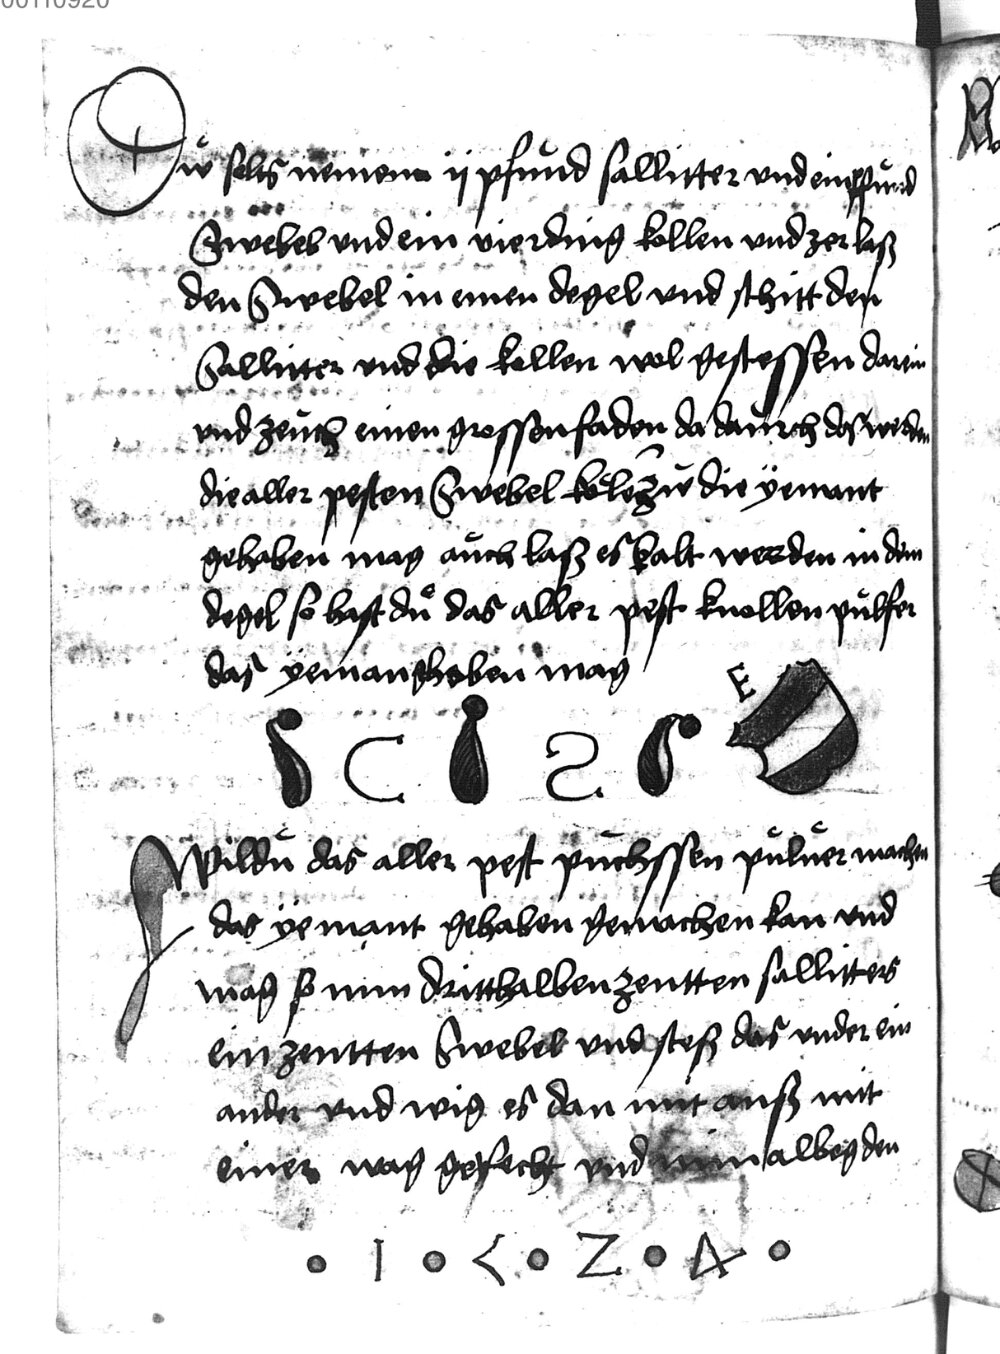 00110920
Dw solts nemenn ij pfund sallitter vnd ein pfund
Swebels vnd ein vierding kollen vnd zer laß
den Swebel in einen degel vnd schitt den
Sallitter vnd die kollen wol gestossen darein
vnd zeuch einen grossen faden da daurch das werden
die aller pesten Swebel die yemant
gehaben mag auch laß es kalt werden in dem
degel so hast du das aller pest knollen pulfer
das yemant gehaben mag
E
Wildu das aller pest puchssen puluer machen
das yemant gehaben gemachen kan vnd
mag so nim dritthalben zentten sallitters
ein zentten Swebel vnd stoß das vnder ein
ander vnd wig es dan mit auß mit
einer wag gerecht vnd nim albeg den